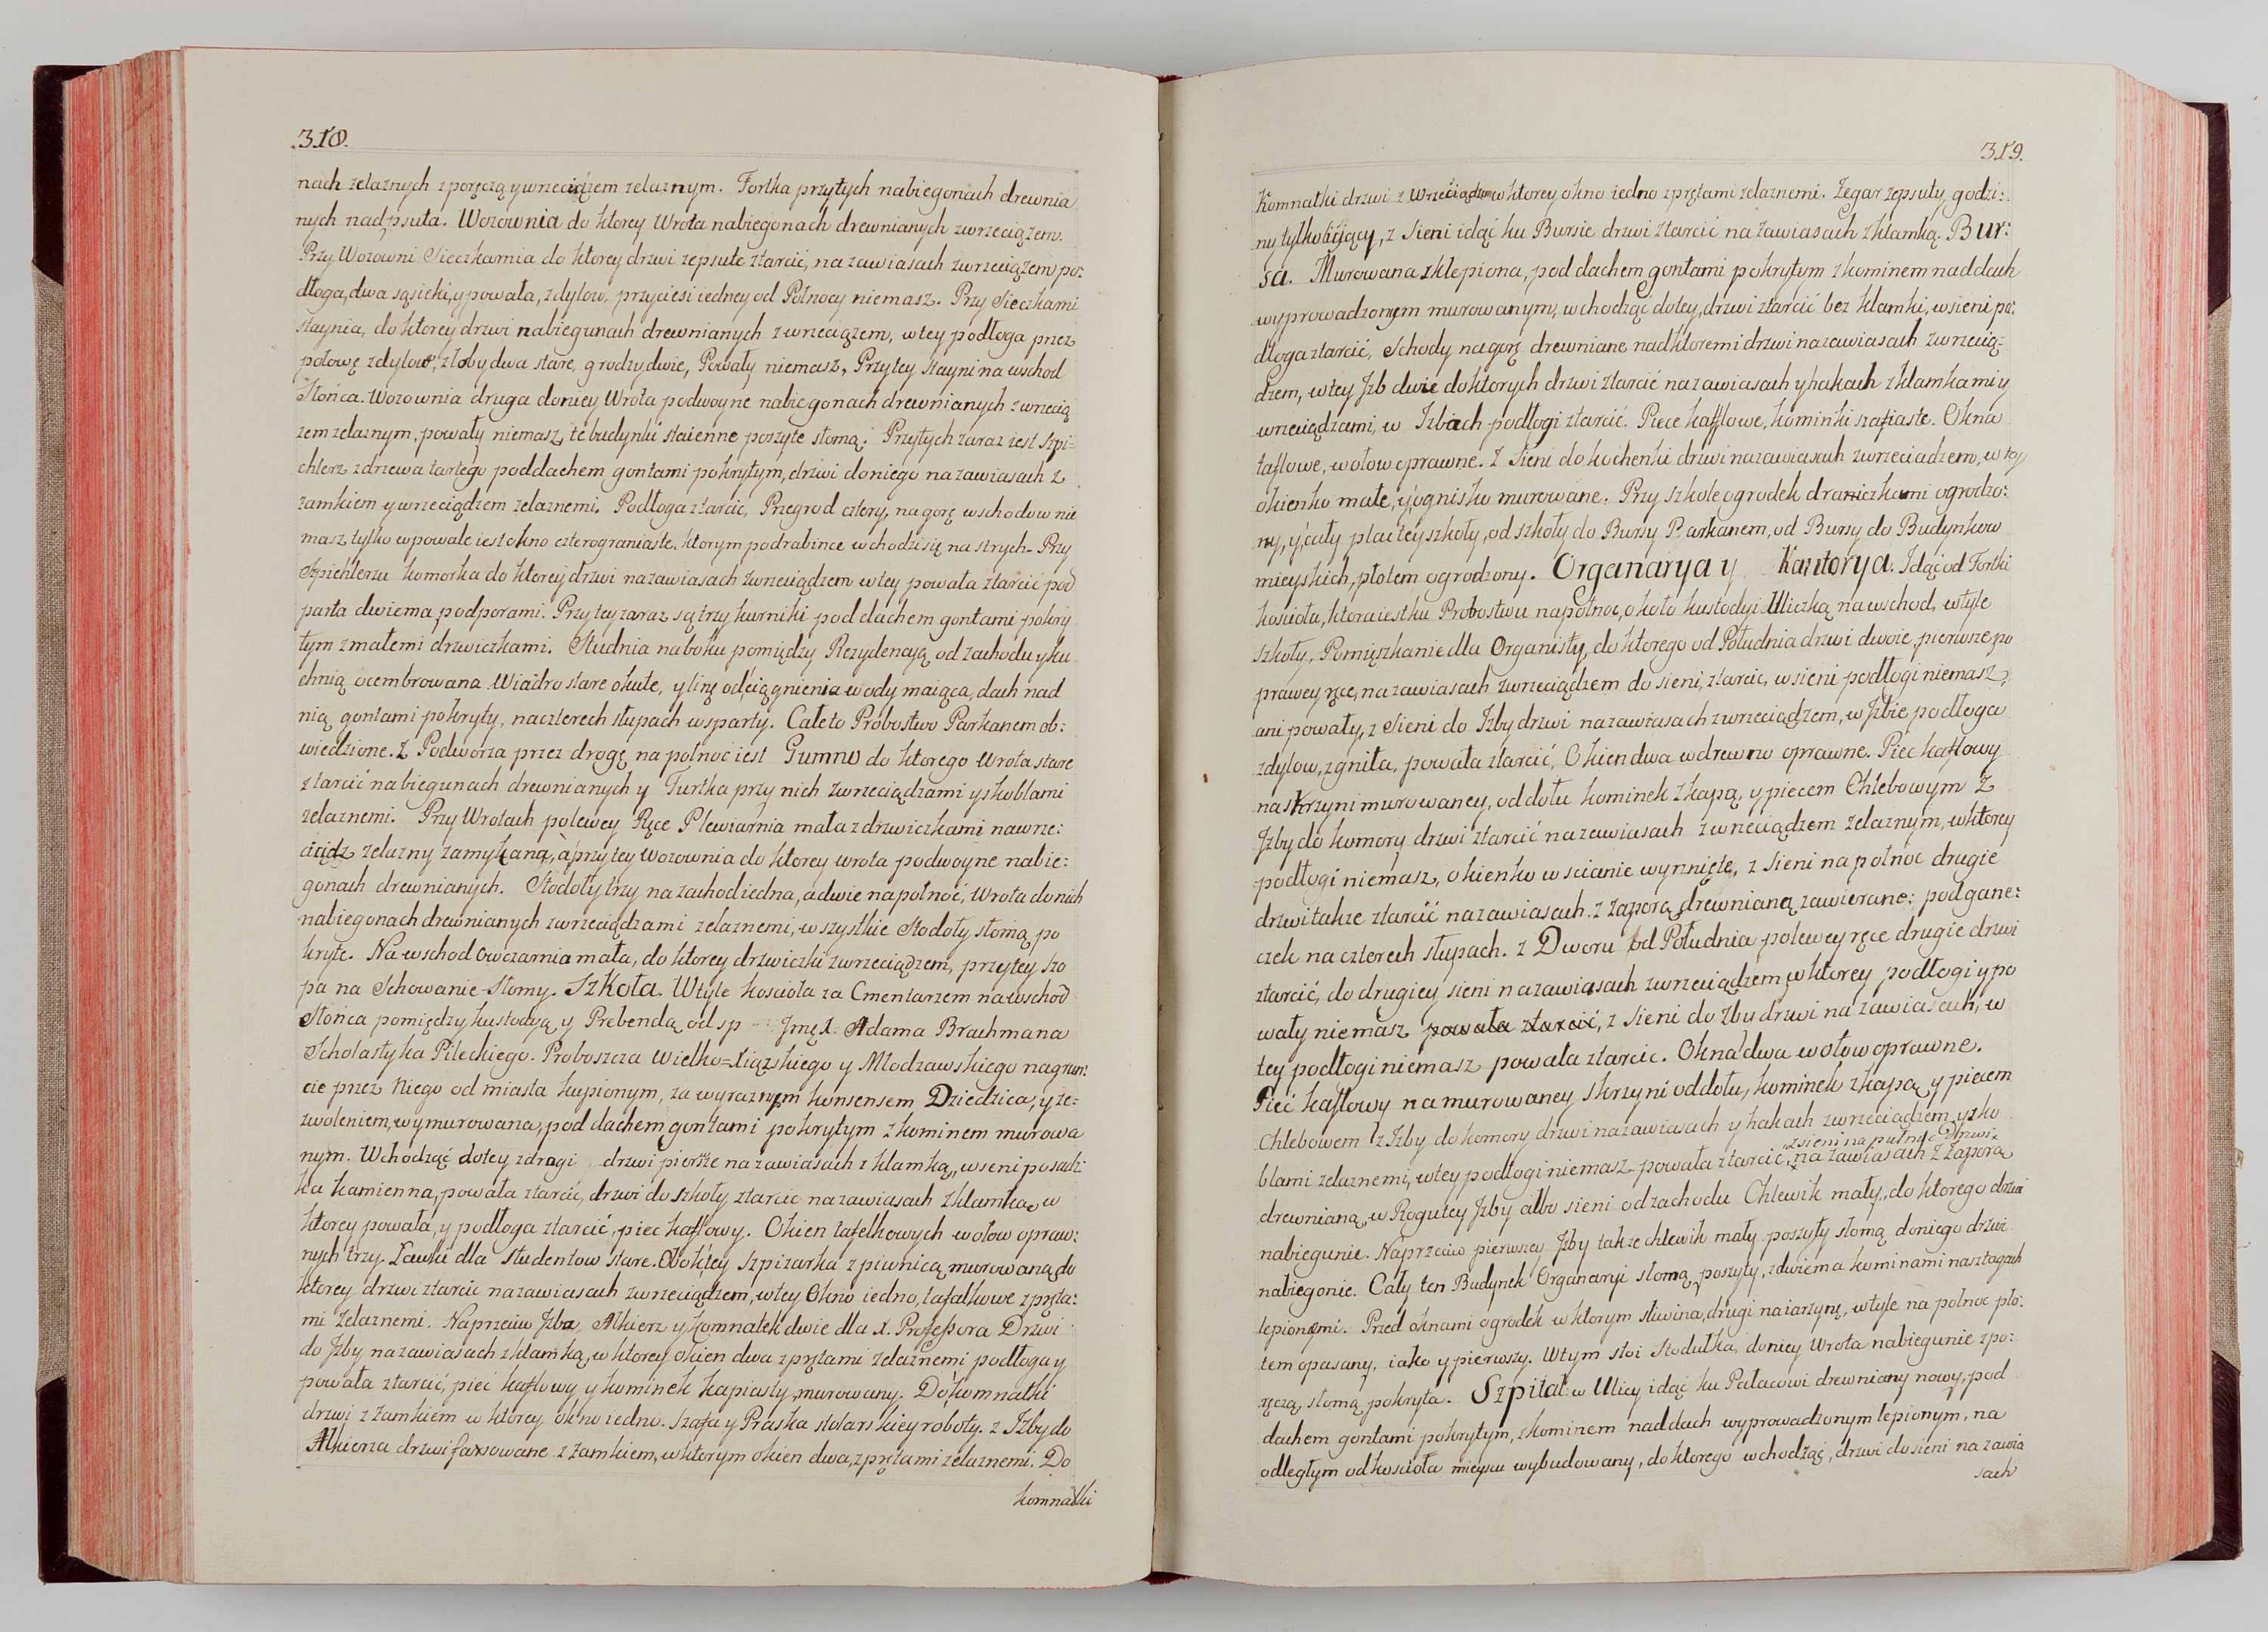 .318.
nach zelaznych z poręczą y wrzeciądzem zelaznym. Fortka przytych nabiegonach drewnia
nych nadpsuta. Wozownia do ktorey Wrota nabiegonach drewnianych zwrzeciązem.
Przy Wozowni Sieczkarnia do ktorey drzwi zepsute ztarcic, na zawiasach zwrzeciązem po:
dłoga, dwa sąsieki, y powała, zdylow, przyciesi iedney od Połnocy niemasz. Przy Sieczkarni
staynia, do ktorey drzwi nabiegunach drewnianych zwrzeciązem, w tey podłoga przez
połowę zdylow, złoby dwa stare, grodzy dwie, Powały niemasz, Przytey stayni na wschod
Słońca. Wozownia druga doniey Wrota podwoyne nabiegonach drewnianych zwrzecią
zem zelaznym, powały niemasz, te budynki staienne poszyte słomą. Przytych zaraz iest szpi-
chlerz zdrzewa tartego pod dachem gontami pokrytym, drzwi doniego na zawiasach z
zamkiem y wrzeciądzem zelaznemi. Podłoga ztarcic, Przegrod cztery, na gorę wschodow nie
masz tylko w powale iest okno czterograniaste, ktorym podrabince wchodzi się na strych. Przy
Szpichlerzu komorka do ktorey drzwi nazawiasach zwrzeciądzem w tey powała ztarcic pod
parta dwiema podporami. Przy tey zaraz są trzy kurniki pod dachem gontami pokry
tym zmałemi drzwiczkami. Studnia naboku pomiędzy Rezydencyą od zachodu y ku
chnią ocembrowana. Wiadro stare okute, y linę odciągnienia wody maiąca, dach nad
nią gontami pokryty, naczterech słupach wsparty. Całe to Probostwo Parkanem ob:
wiedzione. Z Podworza przez drogę na połnoc iest Gumno do ktorego Wrota stare
ztarcić nabiegunach drewnianych y Furtka przy nich zwrzeciądzami y skoblami
zelaznemi. Przy Wrotach polewey Ręce Plewiarnia mała zdrzwiczkami nawrze:
ciądz zelazny zamykaną, a przy tey Wozownia do ktorey wrota podwoyne nabie:
gonach drewnianych. Stodoły trzy na zachod iedna, a dwie na połnoc, Wrota donich
nabiegonach drewnianych zwrzeciądzami zelaznemi, wszystkie Stodoły słomą po
kryte. Na wschod Owczarnia mała, do ktorey drzwiczki zwrzeciądzem, przytey szo
pa na Schowanie Słomy. Szkoła. Wtyle kościoła za Cmentarzem na wschod
Słońca pomiędzy kustodyą y Prebendą od sp Jmę X. Adama Brachmana
Scholastyka Pileckiego. Proboszcza Wielko=Xiązskiego y Młodzawskiego na grun:
cie przez Niego od miasta kupionym, za wyraznym konsensem Dziedzica, y ze:
zwoleniem, wymurowana, pod dachem gontami pokrytym z kominem murowa
nym. Wchodząć dotey zdrogi drzwi piersze na zawiasach z klamką, w seni posadz
ka kamienna, powała ztarcic, drzwi do szkoły ztarcic na zawiasach z klamką, w
ktorey powała, y podłoga ztarcić, piec kaflowy. Okien tafelkowych w ołow opraw:
nych trzy. Ławki dla studentow stare. Obok tey szpizarka z piwnicą murowaną do
ktorey drzwi ztarcic na zawiasach zwrzeciądzem, w tey Okno iedno, tafalkowe z pręta:
mi zelaznemi. Naprzeciw Jzba, Alkierz y komnatek dwie dla X. Professora Drzwi
do Jzby na zawiasach z klamką, w ktorey okien dwa z prętami zelaznemi podłoga y
powała ztarcić, piec kaflowy y kominek kapiasty murowany. Do komnatki
drzwi z zamkiem w ktorey okno iedno. szafa y Praska stolarskiey roboty. z Jzby do
Alkierza drzwi farsowane z zamkiem, w ktorym okien dwa, z prętami zelaznemi. Do
komnatki
319.
Komnatki drzwi z Wrzeciądzem w ktorey okno iedno z prętami zelaznemi. Zegar zepsuty godzi:
ny tylko biiący, z Sieni idąc ku Bursie drzwi ztarcić na zawiasach z klamką. Bur:
sa. Murowana zklepiona, pod dachem gontami pokrytym z kominem nad dach
wyprowadzonym murowanym, wchodząć dotey, drzwi ztarcić bez klamki, w sieni po:
dłoga ztarcić, Schody na gorę drewniane nad ktoremi drzwi na zawiasach zwrzecią:
dzem, w tey Jzb dwie do ktorych drzwi ztarcić na zawiasach y hakach z klamkami y
wrzeciądzami, w Jzbach podłogi ztarcić. Piece kafflowe, kominki szafiaste. Okna
taflowe, w ołow oprawne. Z Sieni do kochenki drzwi na zawiasach zwrzeciadzem, w tey
okienko małe, y ognisko murowane. Przy szkole ogrodek draniczkami ogrodzo:
ny, y cały plac tey szkoły, od szkoły do Bursy Parkanem, od Bursy do Budynkow
mieyskich, płotem ogrodzony. Organarya y Kantorya. Idąć od Fortki
kościoła, ktora iest ku Probostwu na połnoc, około kustodyi Uliczką na wschod, w tyle
szkoły, Pomięszkanie dla Organisty, do ktorego od Południa drzwi dwoie, pierwsze po
prawey ręce, na zawiasach zwrzeciądzem do sieni, ztarcic, w sieni podłogi niemasz,
ani powały, z Sieni do Jzby drzwi na zawiasach zwrzeciądzem, w Jzbie podłoga
zdylow, zgniła, powała ztarcić, Okien dwa w drewno oprawne. Piec kaflowy
na skrzyni murowaney, od dołu kominek z kapą, y piecem Chlebowym Z
Jzby do komory drzwi ztarcić na zawiasach zwrzeciądzem zelaznym, w ktorey
podłogi niemasz, okienko w scianie wyrznięte, z Sieni na połnoc drugie
drzwi takze ztarcić na zawiasach z zaporą drewnianą zawierane: pod gane:
czek na czterech słupach. z Dworu od Południa polewey ręce drugie drzwi
ztarcić, do drugiey sieni na zawiasach zwrzeciądzem w ktorey podłogi y po
wały niemasz powała ztarcić, z Sieni do Jzby drzwi na zawiasach, w
tey podłogi niemasz powała ztarcic. Okna dwa w ołow oprawne.
Piec kaflowy na murowaney skrzyni od dołu, kominek z kapą y piecem
Chlebowem z Jzby do komory drzwi na zawiasach y hakach zwrzeciadzem y sko
z sieni na pułnoc Drzwi
blami zelaznemi, w tey podłogi niemasz powała ztarcic, na zawiasach z zaporą
drewnianą, w Rogu tey Jzby albo sieni od zachodu Chlewik mały, do ktorego drzwi
nabiegunie. Naprzeciw pierwszey Jzby takze chlewik mały poszyty słomą doniego drzwi
nabiegonie. Cały ten Budynek Organaryi słomą poszyty, z dwiema kominami na sztagach
lepionemi. Przed oknami ogrodek w ktorym sliwina, drugi na iarzynę, w tyle na połnoc pło:
tem opasany, iako y pierwszy. Wtym stoi Stodułka, doniey Wrota nabiegunie z po:
ręczą, słomą pokryta. Szpital w Ulicy idąc ku Pałacowi drewniany nowy, pod
dachem gontami pokrytym, z kominem nad dach wyprowadzonym lepionym, na
odległym od kościoła mieyscu wybudowany, do ktorego wchodząć, drzwi do sieni na zawia
sach